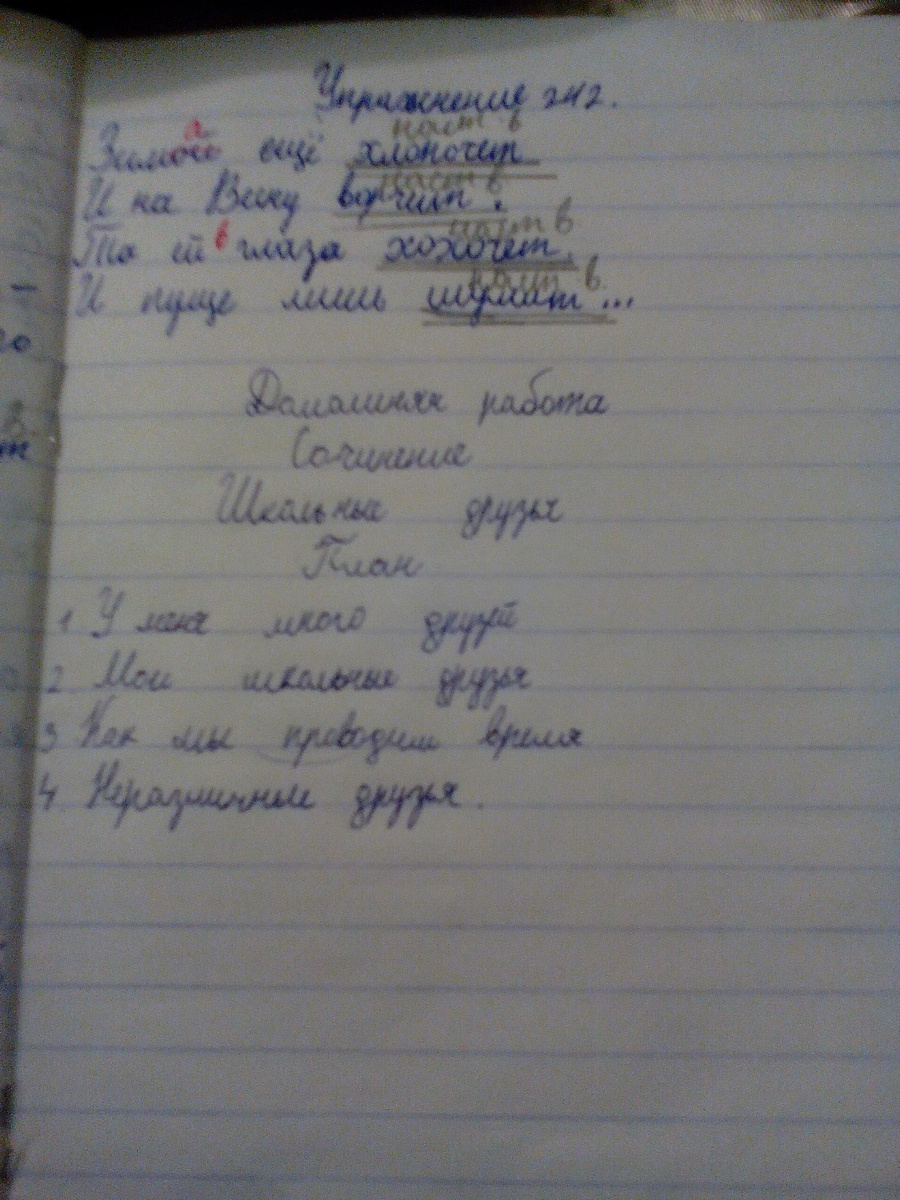 Упражнение 242.
Зима ещё хлопочет
наст в
И на Весну ворчит.
наст в
Та ей в глаза хохочет,
наст в
И пуще лишь шумит...
наст в.
Домашняя работа
Сочинение
Школьных друзья
План
1 У меня много друзей
2 Мои школьные друзья
3 Как мы преводим время
4 Неразличные друзья.